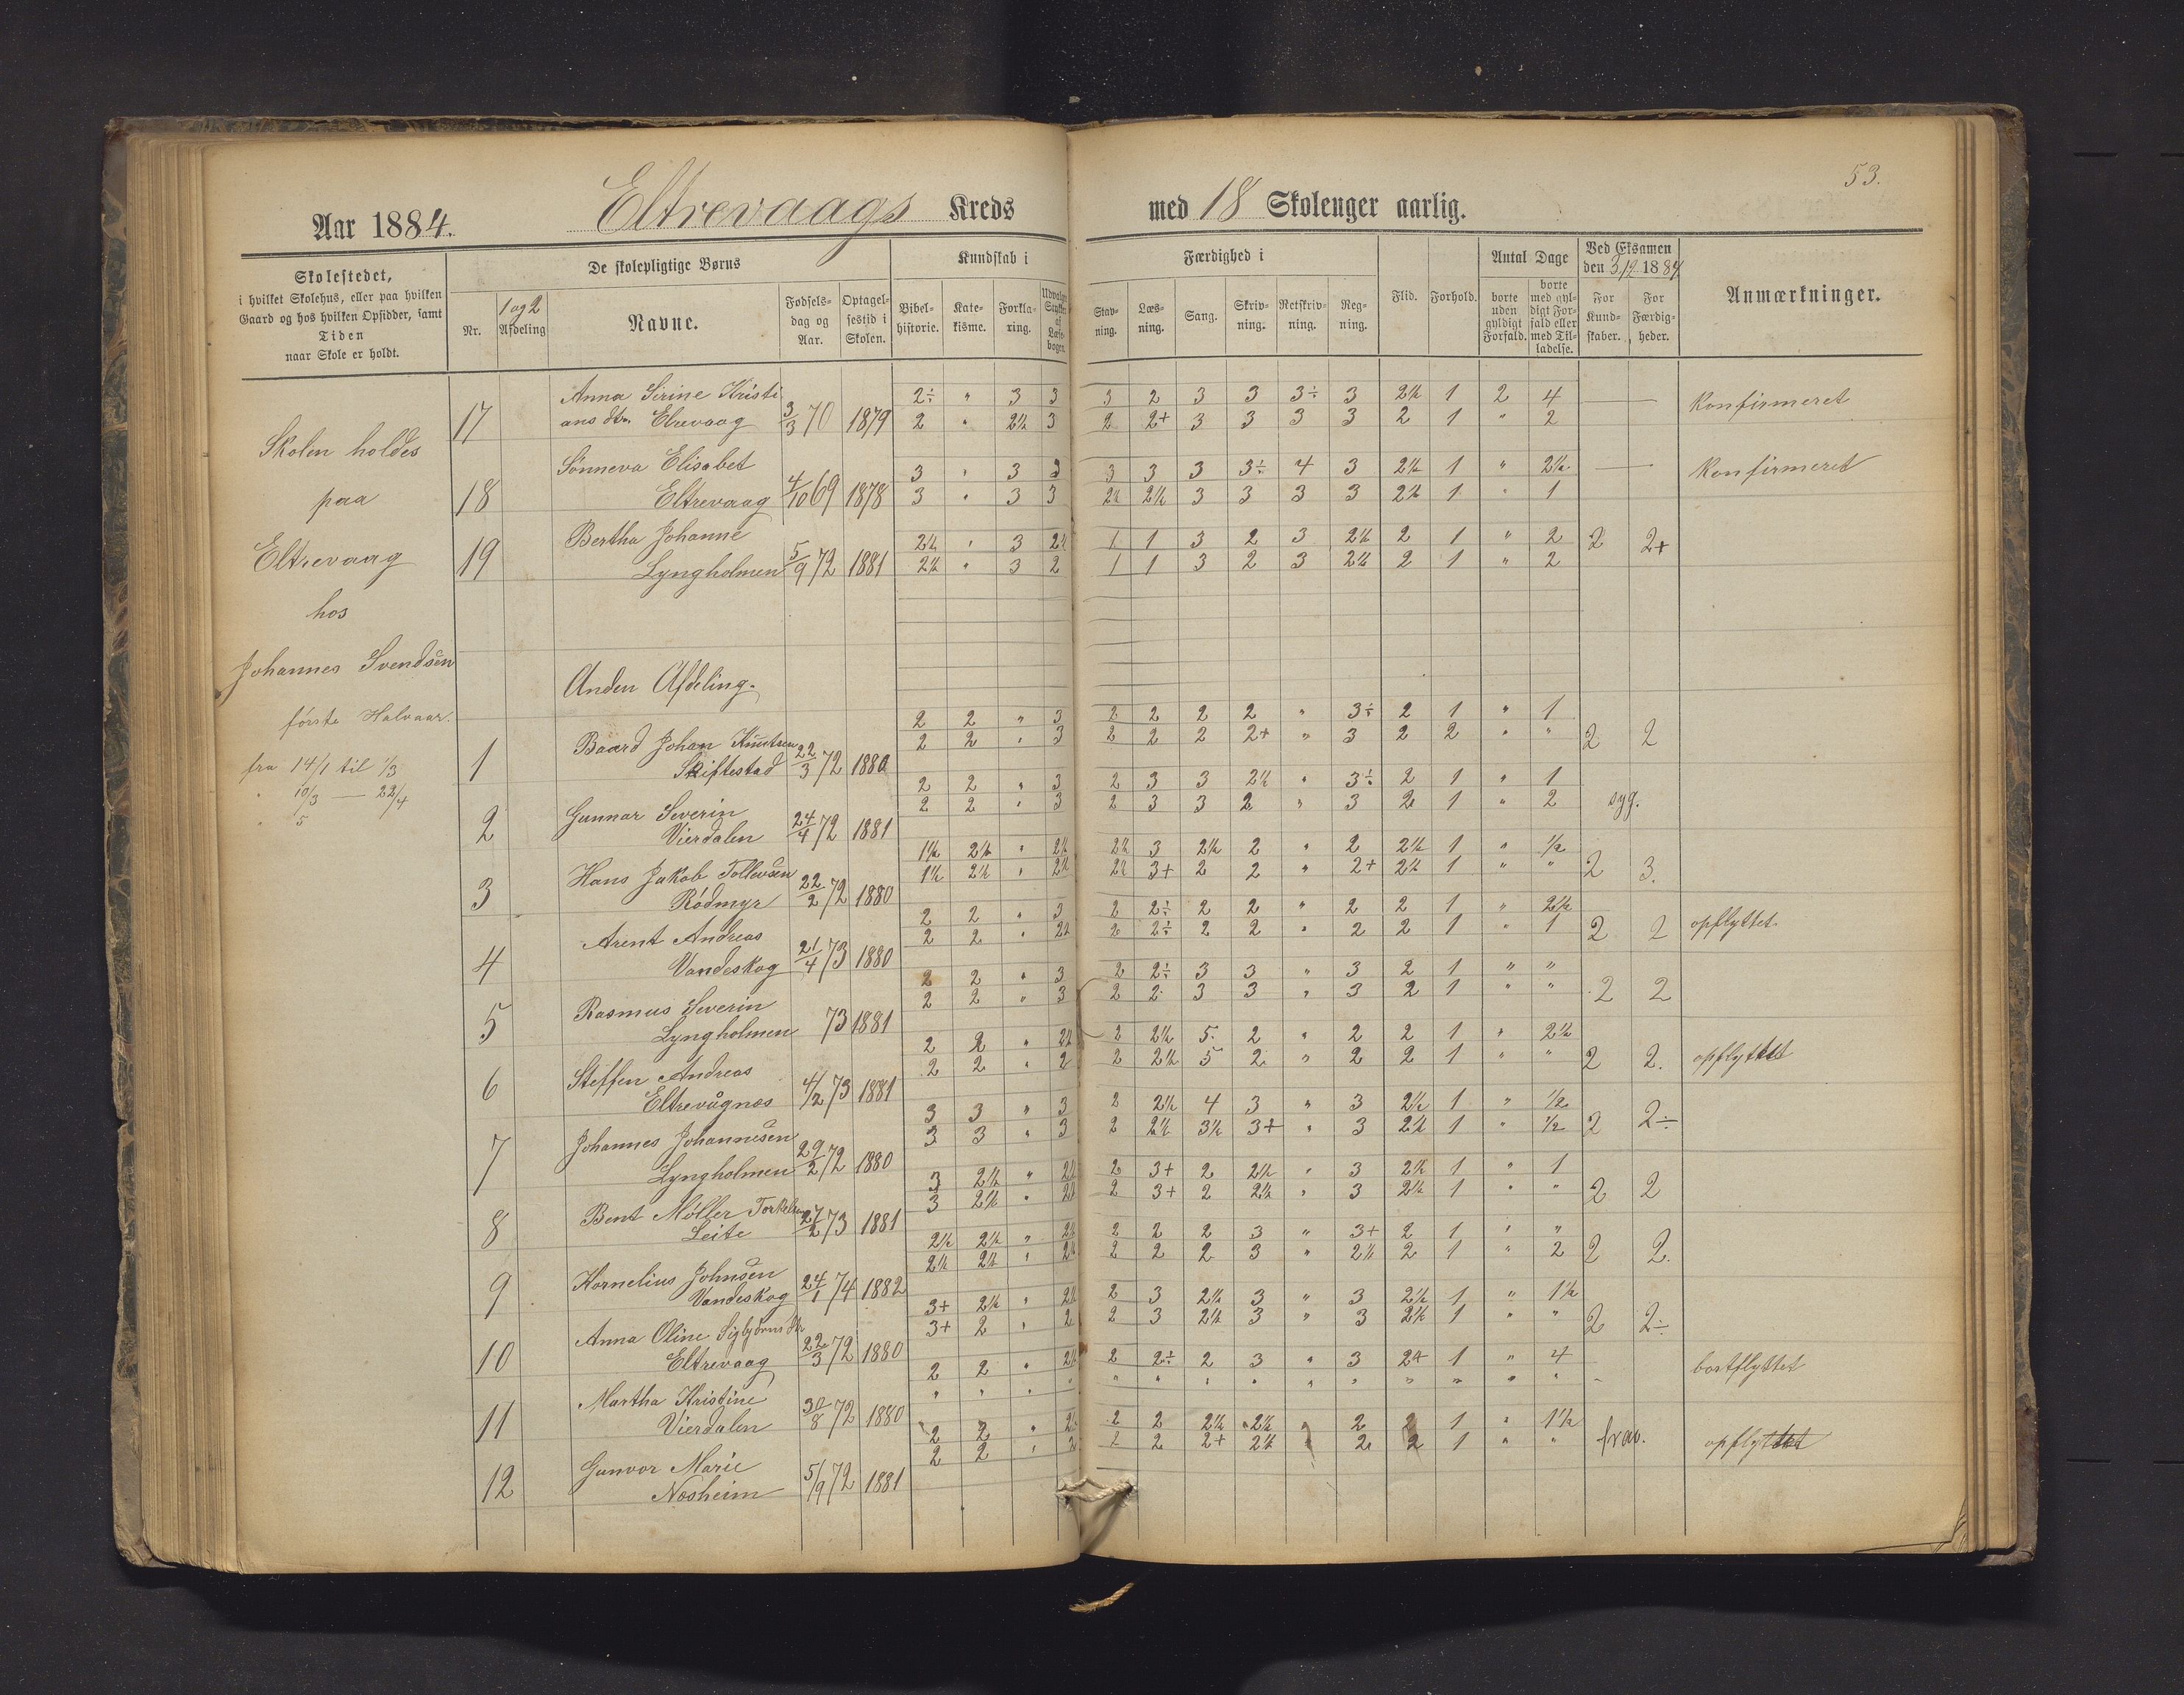 53.
Aar 1884. Eltrevaags Kreds med 18 Skoleuger aarlig.
Skolestedet,
i hvilket Skolehus, eller paa hvilken
Gaard og hos hvilken Opsidder, samt
Tiden
naar Skole er holdt.
De skolepligtige Børns
Nr. 1 og 2 Afdeling Navne. Fødsels-dag og Aar. Optagel-sestid i Skolen.
Kundskab i
Bibel-historie. Kate-kisme. Forkla-ring. Udvalgte Stykker af Læse-bogen.
Færdighed i
Stav-ning. Læs-ning. Sang. Skriv-ning. Retskriv-ning. Reg-ning.
Flid. Forhold.
Antal Dage
borte uden gyldigt Forfald. borte med gyl-digt For-fald eller med Til-ladelse.
Ved Eksamen
den 3/12 1884
For Kund-skaber. For Færdig-heder.
Anmærkninger.
Skolen holdes
paa
Eltrevaag
hos
Johannes Svendsen
første Halvaar.
fra 14/1 til 1/3
" 10/3 — 22/4
" 5
17 Anna Serine Kristi 2÷ " 3 3 3 2 3 3 3÷ 3 2½ 1 2 4 — Konfirmeret
ans dtr. Elrevaag 3/3 70 1879 2 " 2½ 3 2 2+ 3 3 3 3 2 1 " 2
18 Sønneva Elisabet 3 " 3 3 3 3 3 3÷ 4 3 2½ 1 " 2½ — Konfirmeret
Eltrevaag 4/10 69 1878 3 " 3 3 2½ 2½ 3 3 3 3 2½ 1 " 1
19 Bertha Johanne 2½ " 3 2½ 1 1 3 2 3 2½ 2 1 " 2 2 2+
Lyngholmen 5/9 72 1881 2½ " 3 2 1 1 3 2 3 2½ 2 1 " 2
Anden Afdeling.
1 Baard Johan Knutsen 2 2 " 3 2 2 2 2 " 3÷ 2 1 " 1
Skiftestad 22/3 72 1880 2 2 " 3 2 2 2 2+ " 3 2 2 " " 2 2
2 Gunnar Severin 2 2 " 3 2 3 3 2½ " 3÷ 2 1 " 1
Vierdalen 24/4 72 1881 2 2 " 3 2 3 3 2 " 3 2 1 " 2 syg.
3 Hans Jakob Tollevsen 1½ 2½ " 2½ 2½ 3 2½ 2 " 2 2½ 1 " ½
Rødmyr 22/2 72 1880 1½ 2½ " 2½ 2½ 3+ 2 2 " 2+ 2½ 1 " " 2 3.
4 Arent Andreas 2 2 " 3 2 2÷ 2 2 " 2 2 1 " 2½
Vandeskog 21/4 73 1880 2 2 " 2½ 2 2÷ 2 2 " 2 2 1 " 1 2 2 opflyttet.
5 Rasmus Severin 2 2 " 3 2 2÷ 3 3 " 3 2 1 " "
Lyngholmen 73 1881 2 2 " 3 2 2 3 3 " 3 2 1 " " 2 2
6 Steffen Andreas 2 2 " 2½ 2 2½ 5. 2 " 2 2 1 " 2½
Eltrevågnæs 4/2 73 1881 2 2 " 2 2 2½ 5 2 " 2 2 1 " " 2 2. opflyttet
7 Johannes Johannesen 3 3 " 3 2 2½ 4 3 " 3 2½ 1 " ½
Lyngholmen 29/2 72 1880 3 3 " 3 2 2½ 3½ 3+ " 3 2½ 1 " ½ 2 2÷
8 Bent Møller Torkelsen 3 2½ " 2½ 2 3+ 2 2½ " 3 2½ 1 " 1
Leite 27/2 73 1881 3 2½ " 2½ 2 3+ 2 2½ " 3 2½ 1 " " 2 2
9 Kornelius Johnsen 2½ 2½ " 2½ 2 2 2 3 " 3+ 2 1 " "
Vandeskog 24/1 74 1882 2½ 2½ " 2½ 2 2 2 3 " 2½ 2 1 " 2 2 2.
10 Anna Oline Sigbjørns dtr 3+ 2½ " 2½ 2 3 2½ 3 " 3 2½ 1 " 1½
Eltrevaag 22/3 72 1880 3+ 2 " 2 2 3 2½ 3 " 3 2½ 1 " " 2 2÷
11 Martha Kristine 2 2 " 2½ 2 2÷ 2 3 " 3 2+ 1 " 4 bortflyttet
Vierdalen 30/8 72 1880 " " " " " " " " " " " " " "
12 Gunvor Marie 2 2 " 2 2 2 2½ 2½ " 2 2 1 " 1½
Nosheim 5/9 72 1881 2 2 " 2 2 2 2+ 2½ " 2 2 1 " " frav. opflyttet